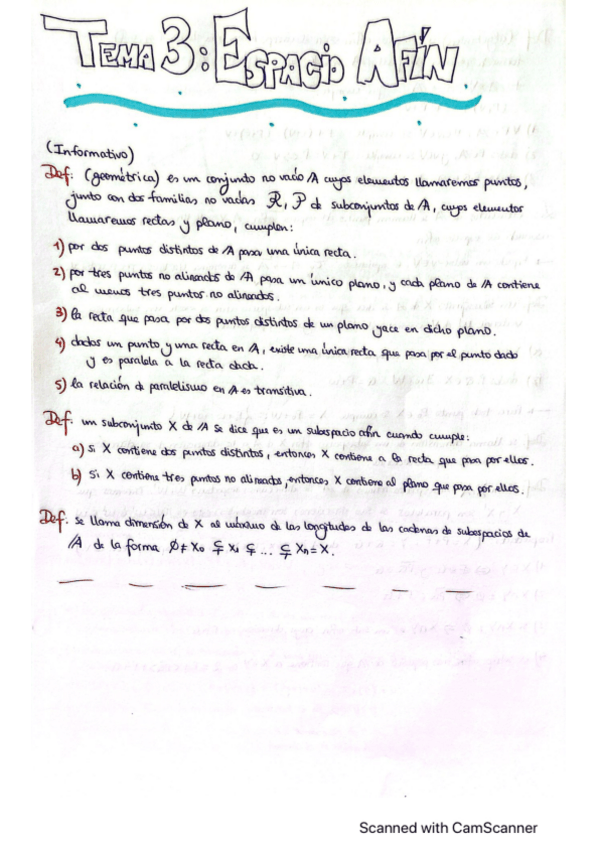 TEMA 3: ESPACIO AFÍN
(Informativo)
Def: (geométrica) es un conjunto no vacío A cuyos elementos llamaremos puntos,
junto con dos familias no vacías R, P de subconjuntos de A, cuyos elementos
llamaremos rectas y plano, cumplen:
1) por dos puntos distintos de A pasa una única recta.
2) por tres puntos no alineados de A pasa un único plano, y cada plano de A contiene
al menos tres puntos no alineados.
3) la recta que pasa por dos puntos distintos de un plano yace en dicho plano.
4) dados un punto y una recta en A, existe una única recta que pasa por el punto dado
y es paralela a la recta dada.
5) la relación de paralelismo en A es transitiva.
Def: un subconjunto X de A se dice que es un subespacio afín cuando cumple:
a) si X contiene dos puntos distintos, entonces X contiene a la recta que pasa por ellos.
b) Si X contiene tres puntos no alineados, entonces X contiene al plano que pasa por ellos.
Def: se llama dimensión de X al máximo de las longitudes de las cadenas de subespacios de
A de la forma ∅ ≠ X₀ ⊊ X₁ ⊊ ... ⊊ Xn = X.
Scanned with CamScanner